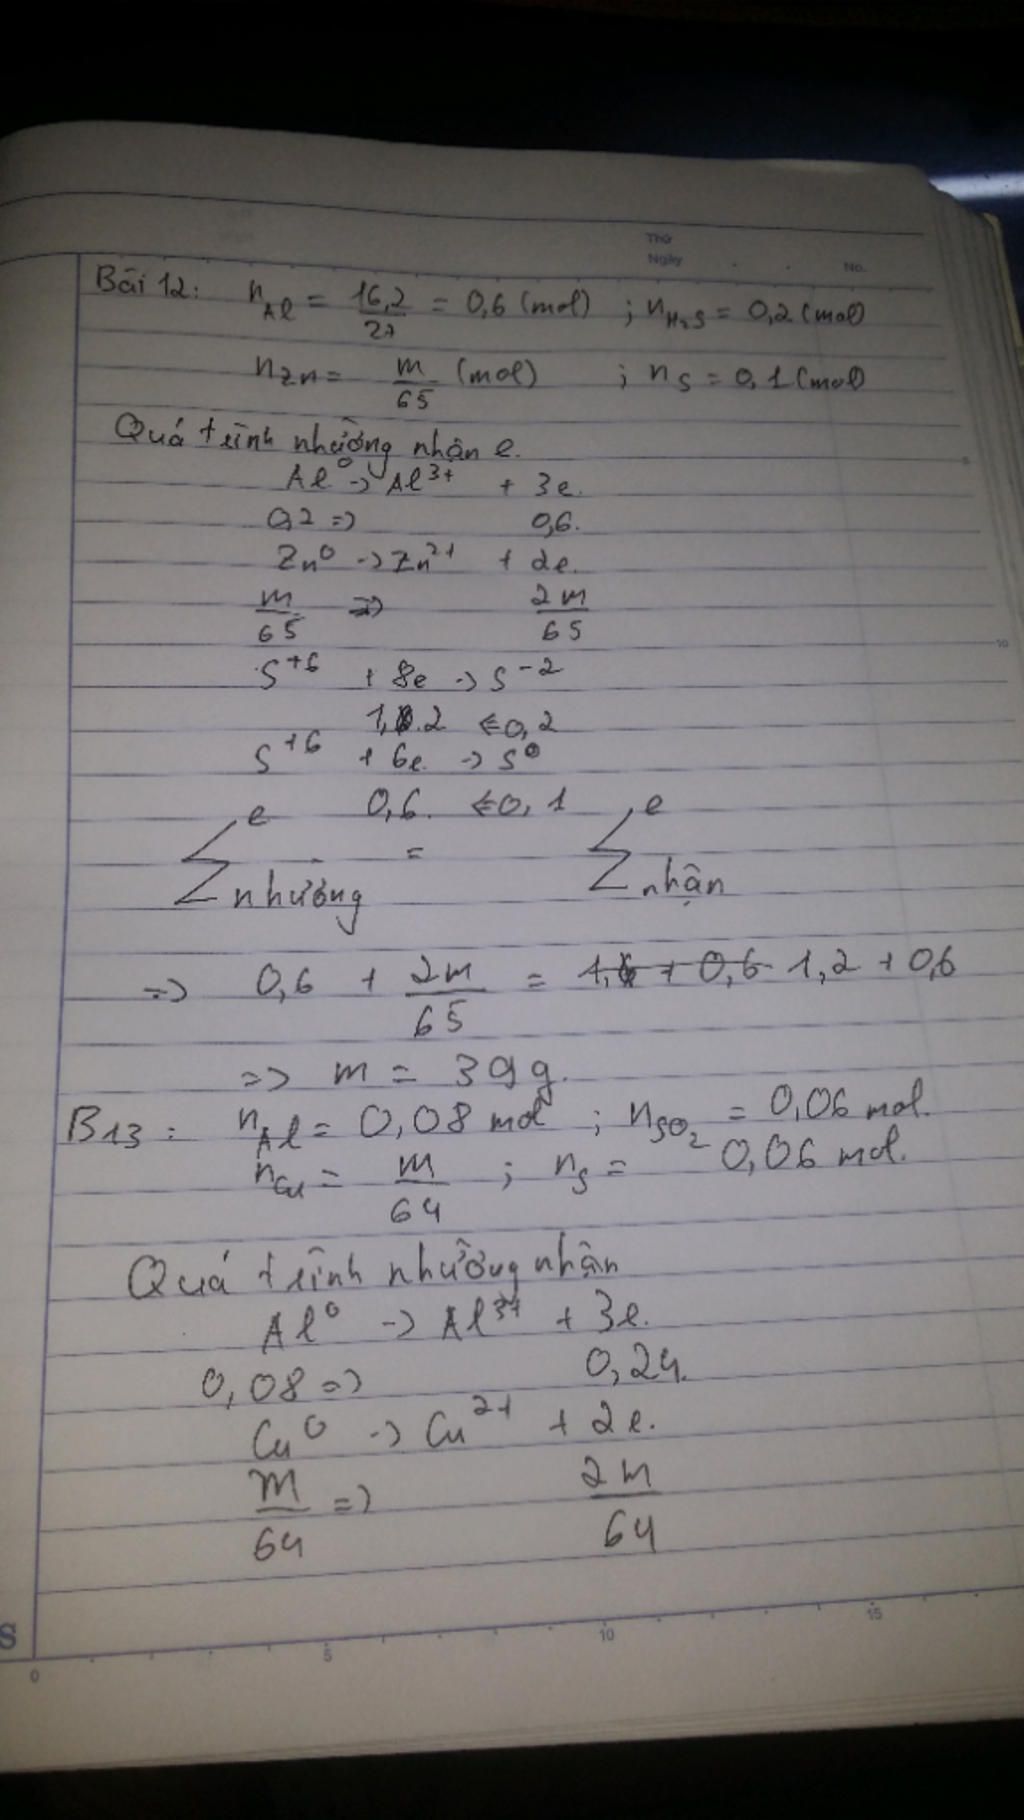 Thứ
Ngày
No.
Bài 12: n_Al = 16,2/27 = 0,6 (mol) ; n_H₂S = 0,2 (mol)
n_Zn = m/65 (mol) ; n_S = 0,1 (mol)
Quá trình nhường nhận e.
Al⁰ -> Al³⁺ + 3e.
0,2 => 0,6.
Zn⁰ -> Zn²⁺ + 2e.
m/65 => 2m/65
S⁺⁶ + 8e -> S⁻²
1,2 <= 0,2
S⁺⁶ + 6e -> S⁰
0,6. <= 0,1
Σ e nhường = Σ e nhận
=> 0,6 + 2m/65 = 1,2 + 0,6
=> m = 39 g.
B13: n_Al = 0,08 mol ; n_SO₂ = 0,06 mol.
n_Cu = m/64 ; n_S = 0,06 mol.
Quá trình nhường nhận
Al⁰ -> Al³⁺ + 3e.
0,08 => 0,24.
Cu⁰ -> Cu²⁺ + 2e.
m/64 => 2m/64
S
0 5 10 15
5
10